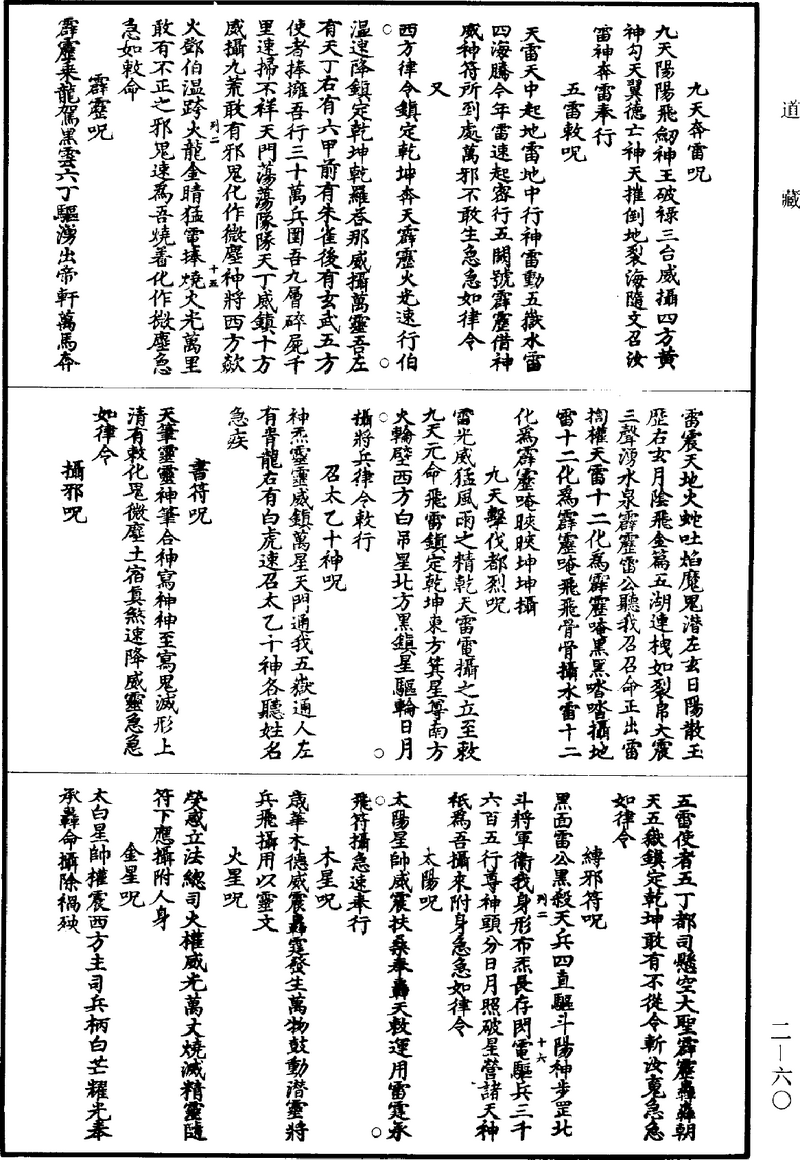 道藏
九天奔雷呪
九天陽陽飛劒神王破祿三台威攝四方黃
神勾天翼德亡神天摧倒地裂海隨文召汝
雷神奔雷奉行
五雷敕呪
天雷天中起地雷地中行神雷動五嶽水雷
四海騰今年雷速起密行五闕號霹靂借神
威神符所到處萬邪不敢生急急如律令
又
西方律令鎮定乾坤奔天霹靂火光速行伯
溫速降鎮定乾坤乾羅呑那威攝萬靈吾左
有天丁右有六甲前有朱雀後有玄武五方
使者捧擁吾行三十萬兵圍吾九層碎屍千
里速掃不祥天門蕩蕩隊隊天丁威鎮十方
威攝九荒敢有邪鬼化作微塵神將西方歘
列二
十五
火鄧伯溫跨火龍金睛猛電捧燒火光萬里
敢有不正之邪鬼速為吾燒番化作微塵急
急如敕命
霹靂呪
霹靂乗龍駕黑雲六丁驅湧出帝軒萬馬奔
雷震天地火蛇吐焰魔鬼潛左玄日陽散玉
歷右玄月陰飛金篇五湖連棧如裂帛大震
三聲湧水泉霹靂雷公聽我召召命正出雷
搊權天雷十二化為霹靂唵黑黑喀喀攝地
雷十二化為霹靂唵飛飛骨骨攝水雷十二
化為霹靂唵䀹䀹坤坤攝
九天擊伐都烈呪
雷光威猛風雨之精乾天雷電攝之立至敕
九天元命飛雷鎮定乾坤東方箕星尊南方
火輪壁西方白吊星北方黑鎮星驅輪日月
攝將兵律令敕行
召太乙十神呪
神炁靈靈威鎮萬星天門通我五嶽通人左
有青龍右有白虎速召太乙十神各聽姓名
急疾
書符呪
天筆靈靈神筆合神寫神神至寫鬼滅形上
清有敕化鬼微塵土宿真煞速降威靈急急
如律令
攝邪呪
五雷使者五丁都司懸空大聖霹靂轟轟朝
天五嶽鎮定乾坤敢有不從令斬汝寃急急
如律令
縛邪符呪
黑面雷公黑殺天兵四直驅斗陽神步罡北
斗將軍衛我身形布炁長存閃電驅兵三千
列二
十六
六百五行尊神頭分日月照破星營諸天神
祇為吾攝來附身急急如律令
太陽呪
太陽星帥威震扶桑奉轟天敕運用雷霆承
飛符攝急速奉行
木星呪
歲華木德威震轟霆發生萬物鼓動潛靈將
兵飛攝用以靈文
火星呪
熒惑立法總司火權威光萬丈燒滅精靈隨
符下應攝附人身
金星呪
太白星帥權震西方主司兵柄白芒耀光奉
承轟命攝除禍殃
二—六〇